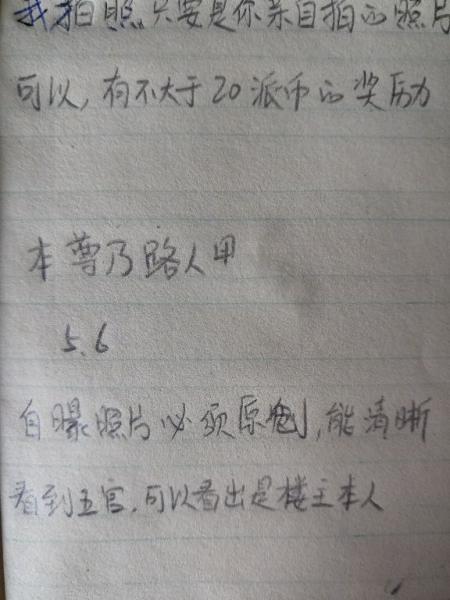 我拍照 只要是你亲自拍的照片
可以,有不大于20派币的奖励
本尊乃路人甲
5.6
自曝照片必须原创,能清晰
看到五官,可以看出是楼主本人